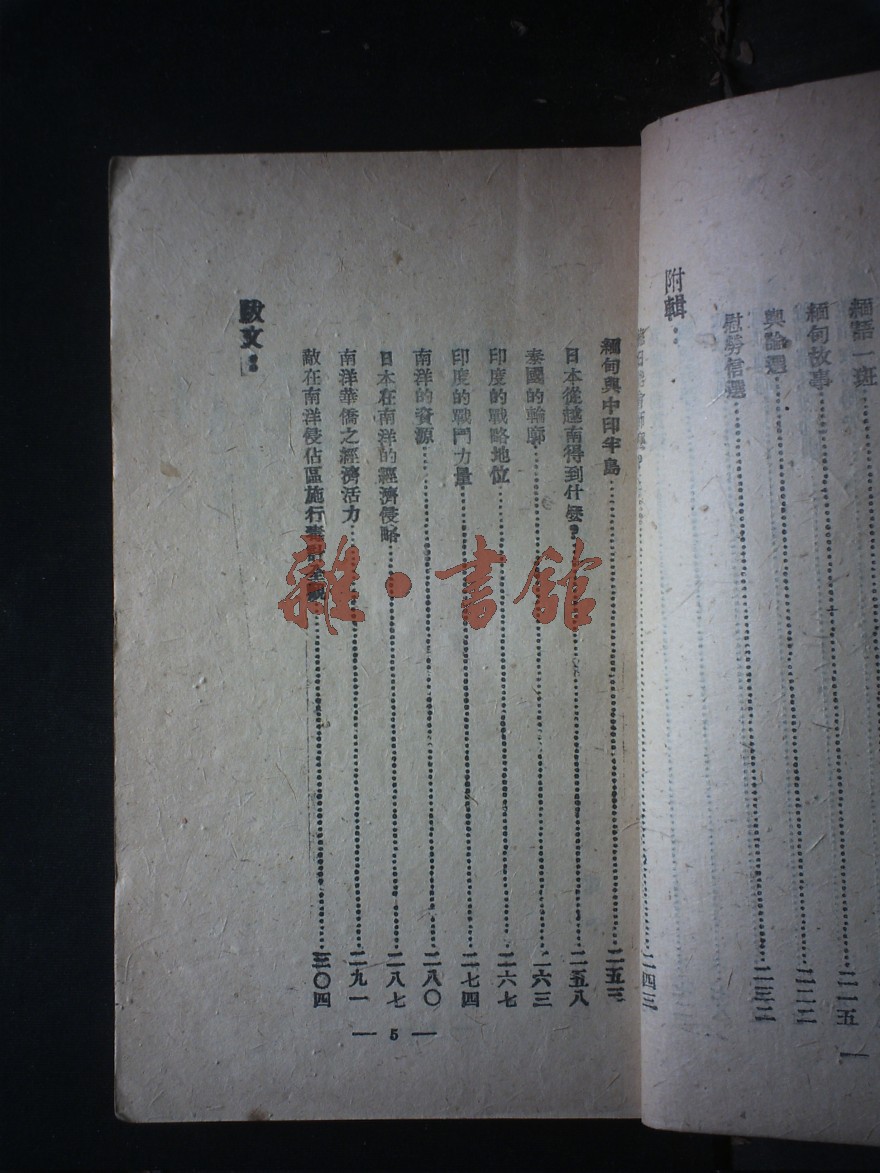 緬語一斑……二一五
緬甸故事……二二二
輿論選……二三二
慰勞信選
附輯：
……二四三
緬甸與中印半島……二五三
日本從越南得到什麼？……二五八
泰國的輪廓……二六三
印度的戰略地位……二六七
印度的戰鬥力量……二七四
南洋的資源……二八〇
日本在南洋的經濟侵略……二八七
南洋華僑之經濟活力……二九一
敵在南洋侵佔區施行……三〇四
跋文：
— 5 —
雜·書館